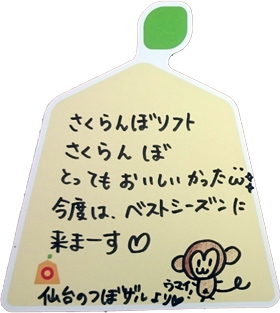 さくらんぼソフト
さくらんぼ
とってもおいしいかったω
今度は、ベストシーズンに
来まーす♡
ウマイ!
仙台のつぼザルより♡